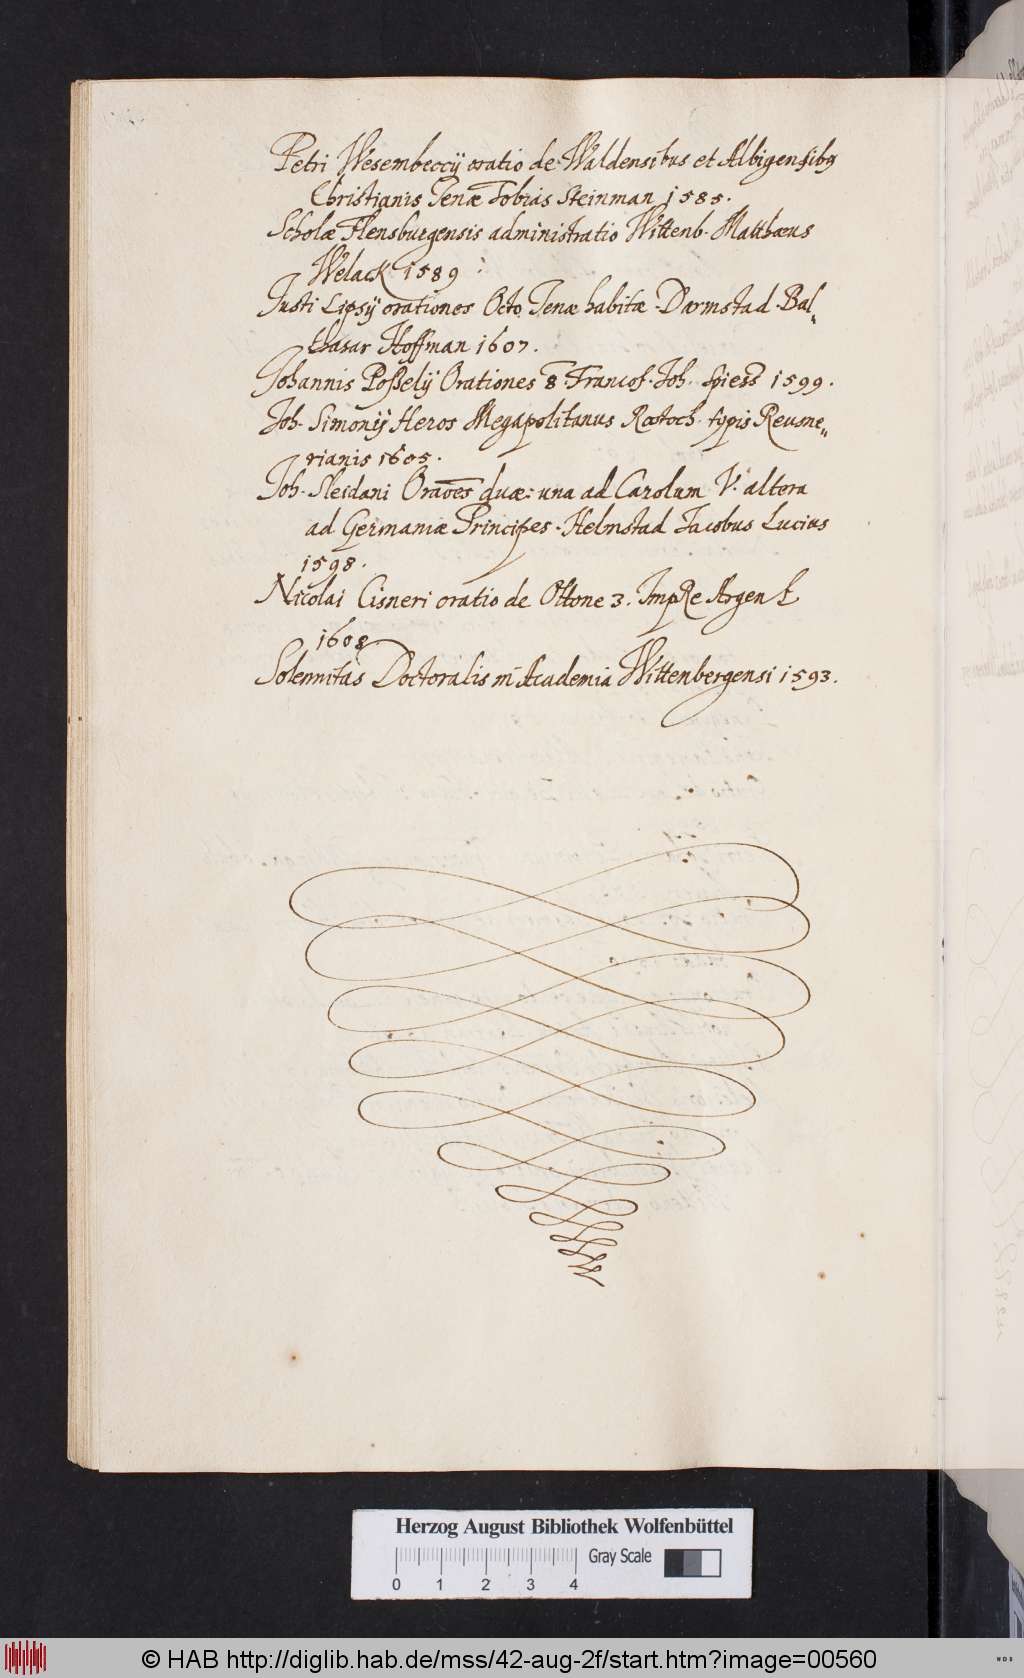 Petri Wesembeccij oratio de Waldensibus et Albigensibꝫ
Christianis Jenæ Tobias Steinman 1585.
Scholæ Flensburgensis administratio Wittenb. Matthæus
Welack 1589
Justi Lipsij orationes Octo Jenæ habitæ Darmstad Bal„
thasar Hoffman 1607.
Johannis Poßelij Orationes 8 Francof. Joh. Spiess 1599.
Joh. Simonij Heros Megapolitanus Rostoch. typis Reusne„
rianis 1605.
Joh. Sleidani Oraōes duæ: una ad Carolum V. altera
ad Germaniæ Principes. Helmstad Jacobus Lucius
1598.
Nicolai Cisneri oratio de Ottone 3. Imp̱Re Argent
1608
Solennitas Doctoralis in Academia Wittenbergensi 1593.
Herzog August Bibliothek Wolfenbüttel
Gray Scale
0 1 2 3 4
© HAB http://diglib.hab.de/mss/42-aug-2f/start.htm?image=00560